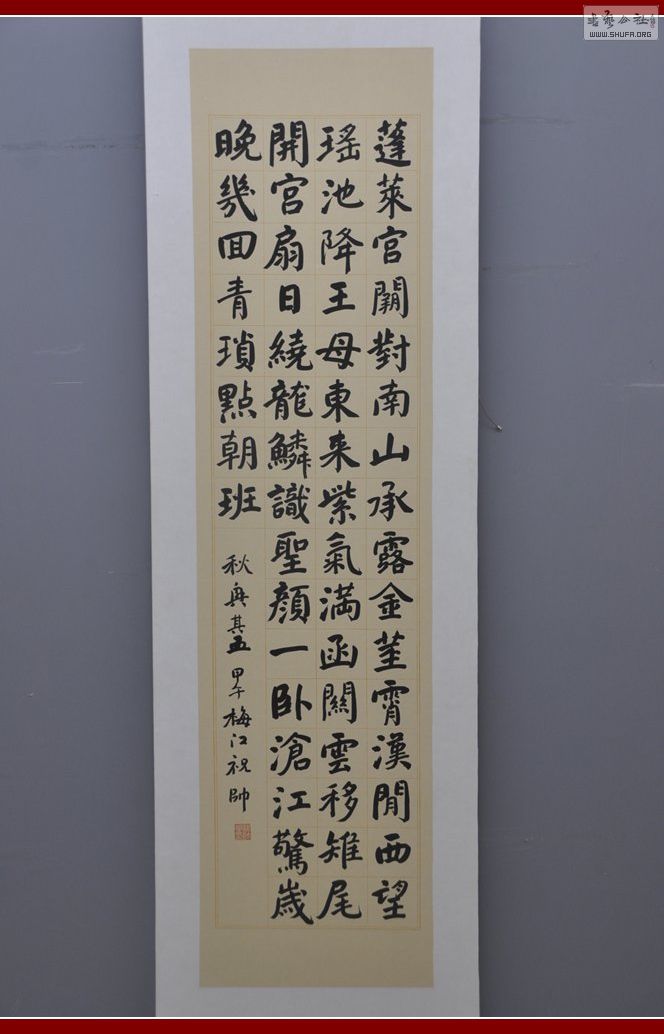 蓬萊宮闕對南山承露金莖霄漢閒西望
瑤池降王母東来紫氣滿函關雲移雉尾
開宮扇日繞龍鱗識聖顏一卧滄江驚歲
晚幾囬青瑣點朝班
秋興其五 甲午梅江祝帥
書藝公社
WWW.SHUFA.ORG